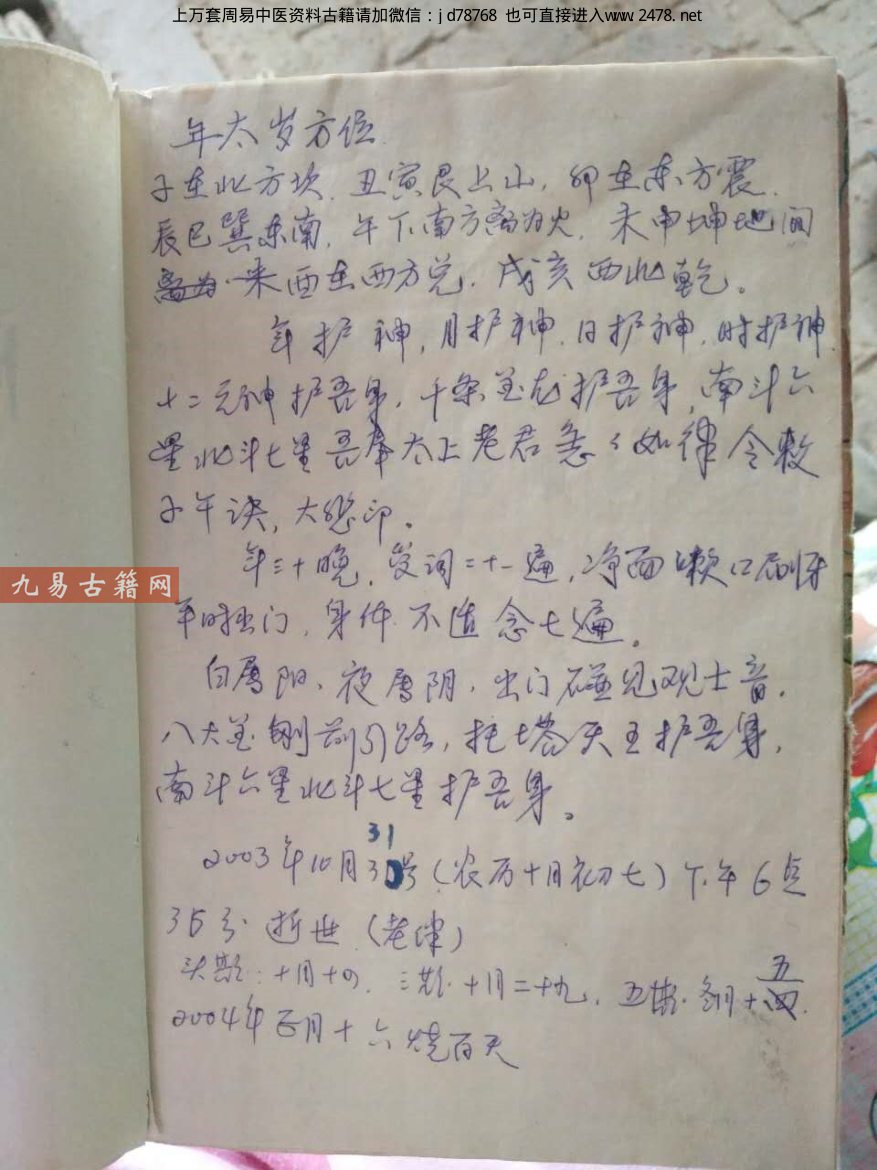 上万套周易中医资料古籍请加微信：jd78768 也可直接进入www.2478.net
年太岁方位
子在北方坎、丑寅艮上山，卯在东方震、
辰巳巽东南，午下南方离为火、未申坤地间
酉在西方兑、戌亥西北乾。
年护神，月护神、日护神，时护神
十二元神护吾身，千条金龙护吾身，南斗六
星北斗七星吾奉太上老君急々如律令敕
子午诀，大 印。
九易古籍网
年三十晚，发词二十一遍，净面漱口刷牙
平时出门，身体不适念七遍。
白属阳、夜属阴，出门碰见观士音，
八大金刚前引路，托塔天王护吾身，
南斗六星北斗七星护吾身。
31
2003年10月30号（农历十月初七）下午6点
35分逝世（老伴）
头期：十月十四、三期、十月二十九、五期、冬月十五
2004年正月十六烧百天